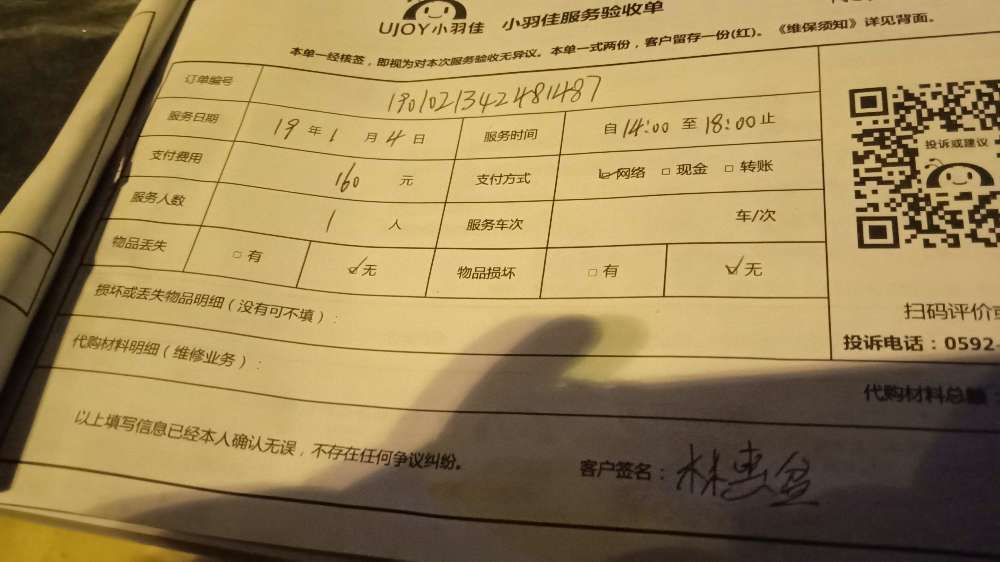 UJOY小羽佳 小羽佳服务验收单
本单一经核签，即视为对本次服务验收无异议。本单一式两份，客户留存一份(红)。《维保须知》详见背面。
订单编号 190102134248487
服务日期 19 年 1 月 4 日 服务时间 自 14:00 至 18:00 止
支付费用 160 元 支付方式 ☑网络 □现金 □转账
服务人数 1 人 服务车次 车/次
物品丢失 □有 ☑无 物品损坏 □有 ☑无
投诉或建议
损坏或丢失物品明细（没有可不填）：
扫码评价
投诉电话：0592-
代购材料明细（维修业务）：
代购材料总额
以上填写信息已经本人确认无误，不存在任何争议纠纷。
客户签名：林惠